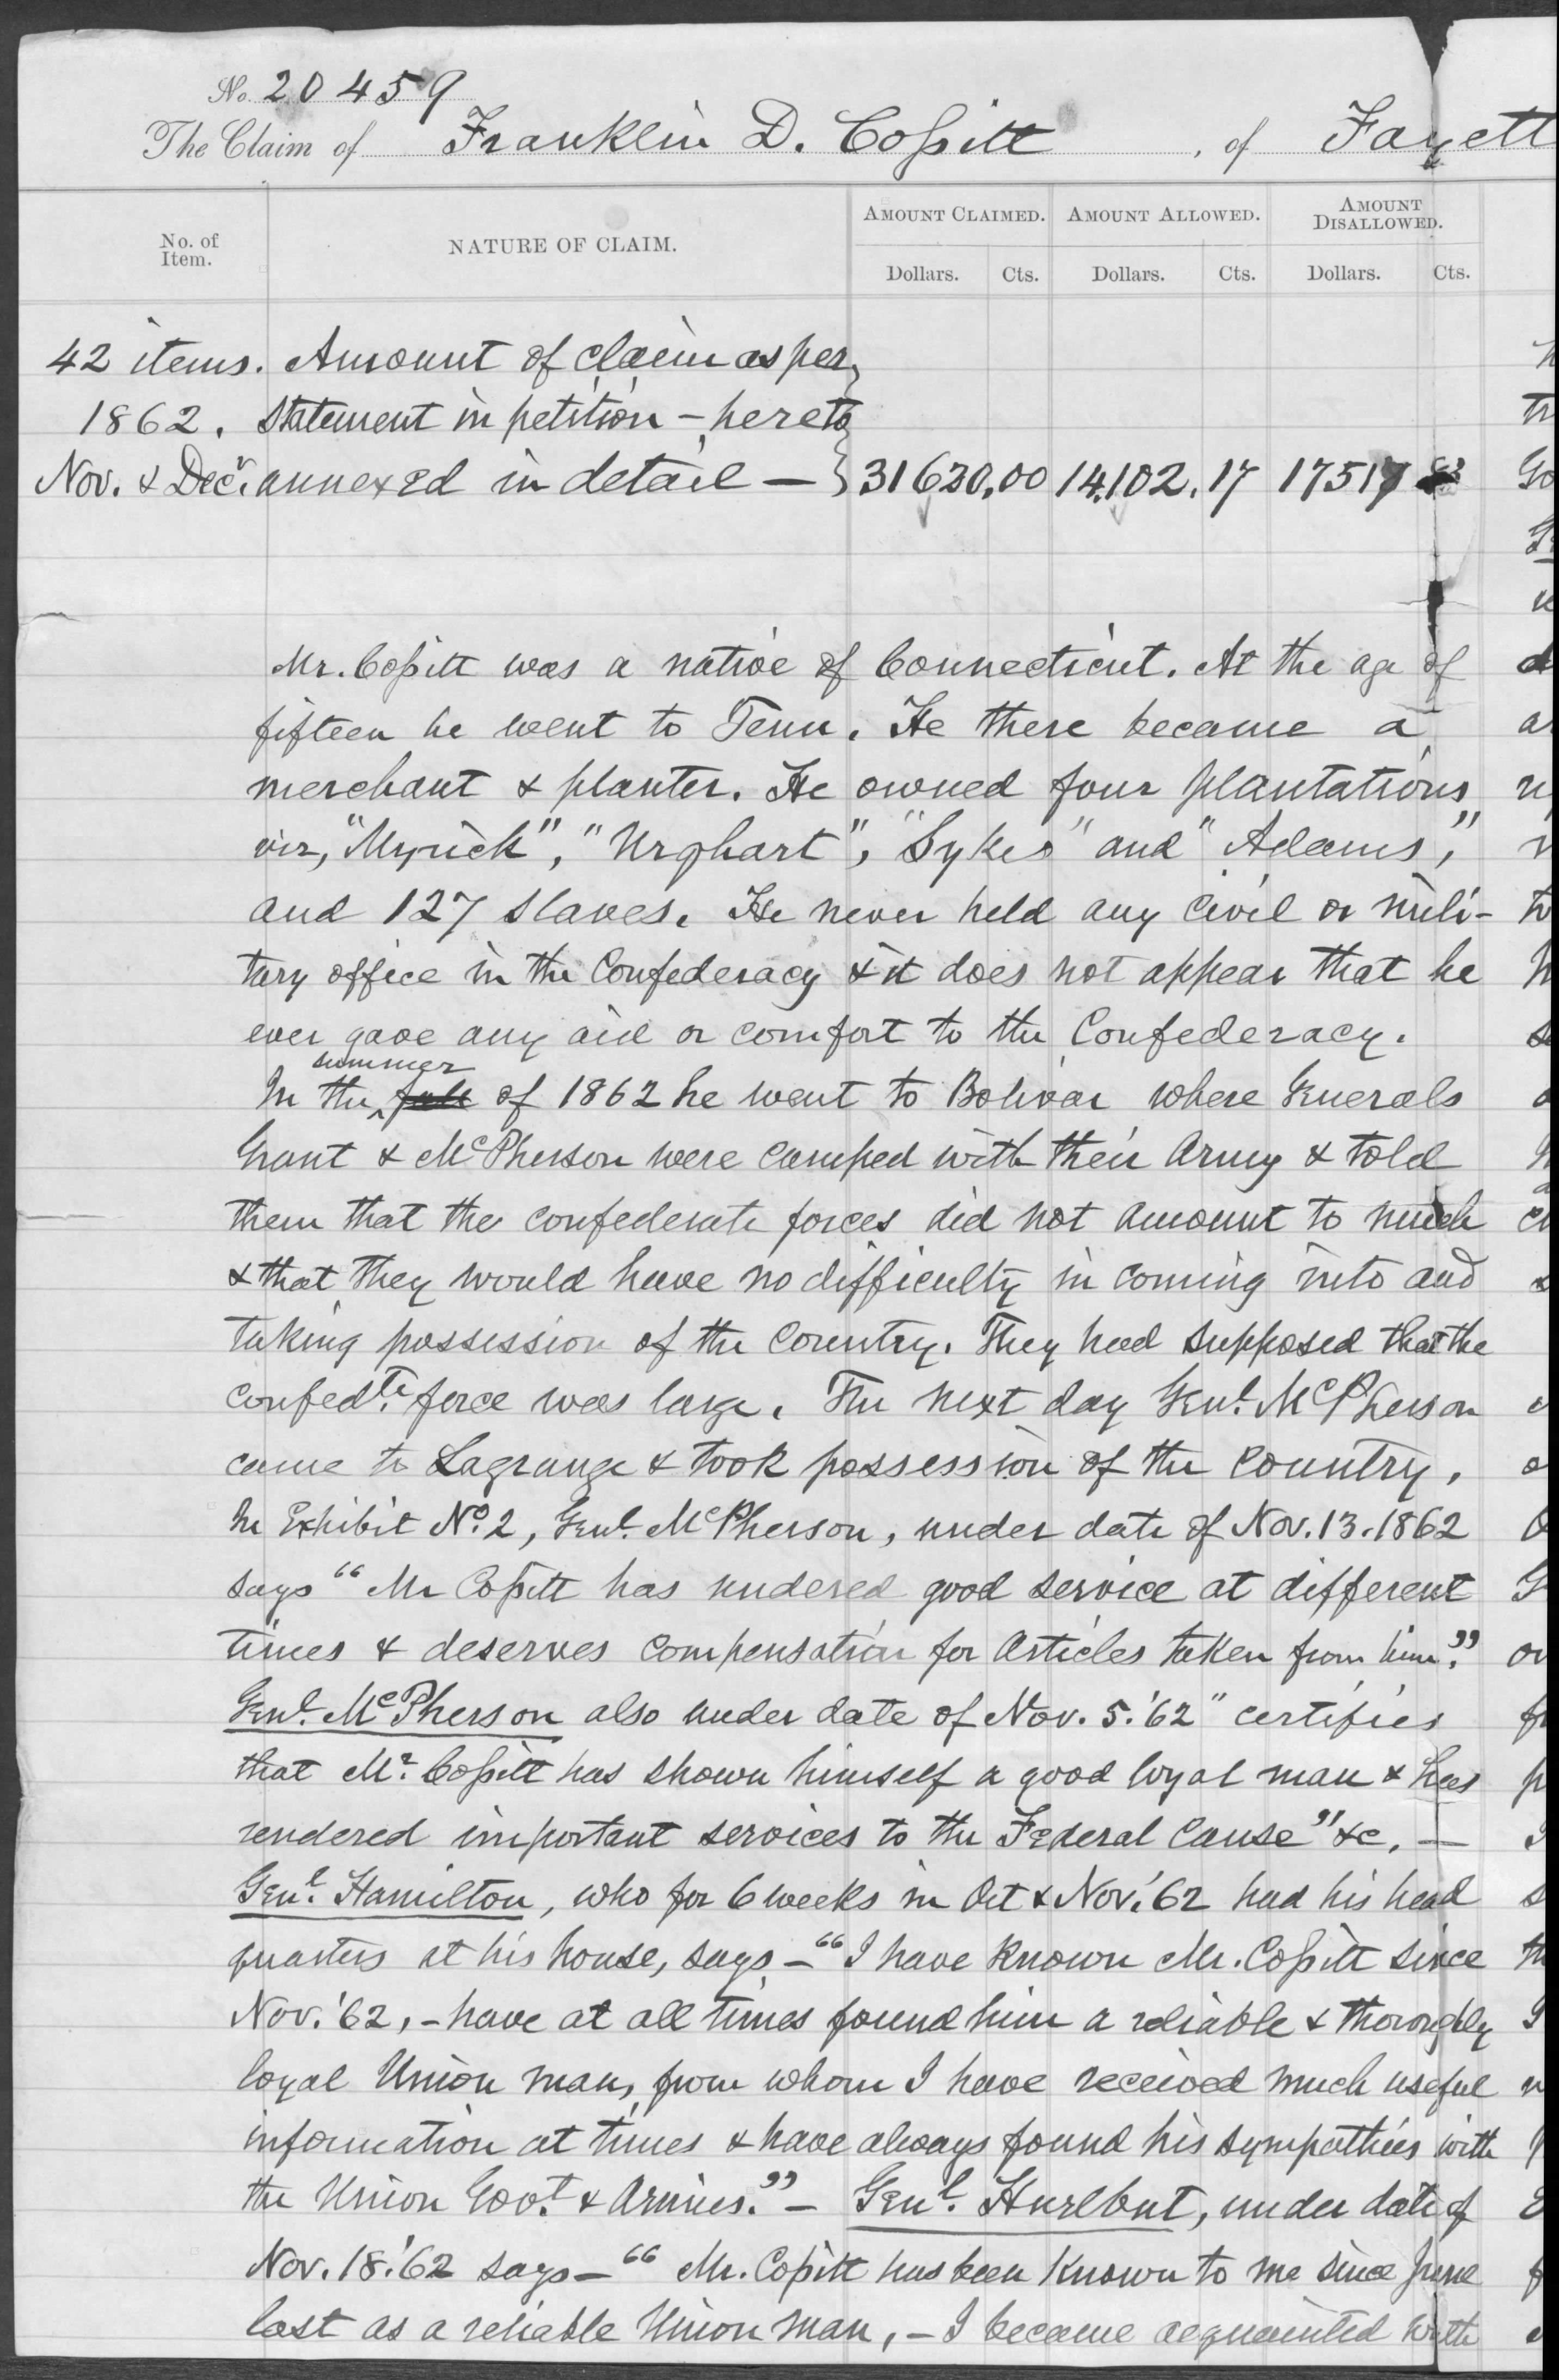 No. 20459
The Claim of Franklin D. Coſsitt, of Fayett
No. of Item.
NATURE OF CLAIM.
AMOUNT CLAIMED.
AMOUNT ALLOWED.
AMOUNT DISALLOWED.
Dollars. Cts. Dollars. Cts. Dollars. Cts.
42 items. Amount of claim as per
1862. statement in petition - hereto
Nov. & Decr. annexed in detail — } 31630.00 14,102.17 17517 83
Mr. Coſsitt was a native of Connecticut. At the age of
fifteen he went to Tenn. He there became a
merchant & planter. He owned four plantations
viz, "Myrick", "Urqhart", "Sykes" and "Adams",
and 127 slaves. He never held any civil or mili-
tary office in the Confederacy & it does not appear that he
ever gave any aid or comfort to the Confederacy.
In the fall summer of 1862 he went to Bolivar where Generals
Grant & McPherson were camped with their army & told
them that the confederate forces did not amount to much
& that they would have no difficulty in coming into and
taking possession of the country. They had supposed that the
confedte. force was large. The next day Genl. McPherson
came to Lagrange & took possession of the country.
In Exhibit No. 2, Genl. McPherson, under date of Nov. 13. 1862
says "Mr Coſsitt has rendered good service at different
times & deserves compensation for articles taken from him."
Genl. McPherson also under date of Nov. 5. '62 "certifies
that Mr. Coſsitt has shown himself a good loyal man & has
rendered important services to the Federal cause" &c. —
Genl. Hamilton, who for 6 weeks in Oct & Nov. '62 had his head
quarters at his house, says — "I have known Mr. Coſsitt since
Nov. '62, - have at all times found him a reliable & thoroughly
loyal Union man, from whom I have received much useful
information at times & have always found his sympathies with
the Union Govt. & Armies." — Genl. Hurlbut, under date of
Nov. 18. '62 says — "Mr. Coſsitt has been known to me since June
last as a reliable Union man, - I became acquainted with